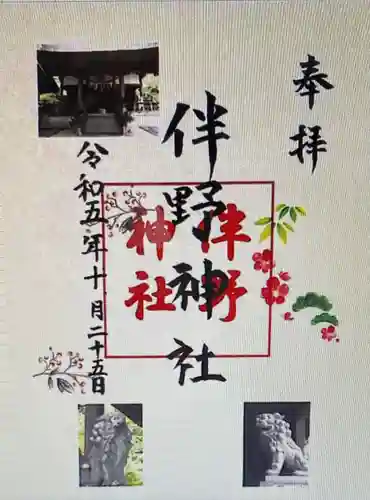 奉拝
伴野神社
伴野
神社
令和五年十月二十五日